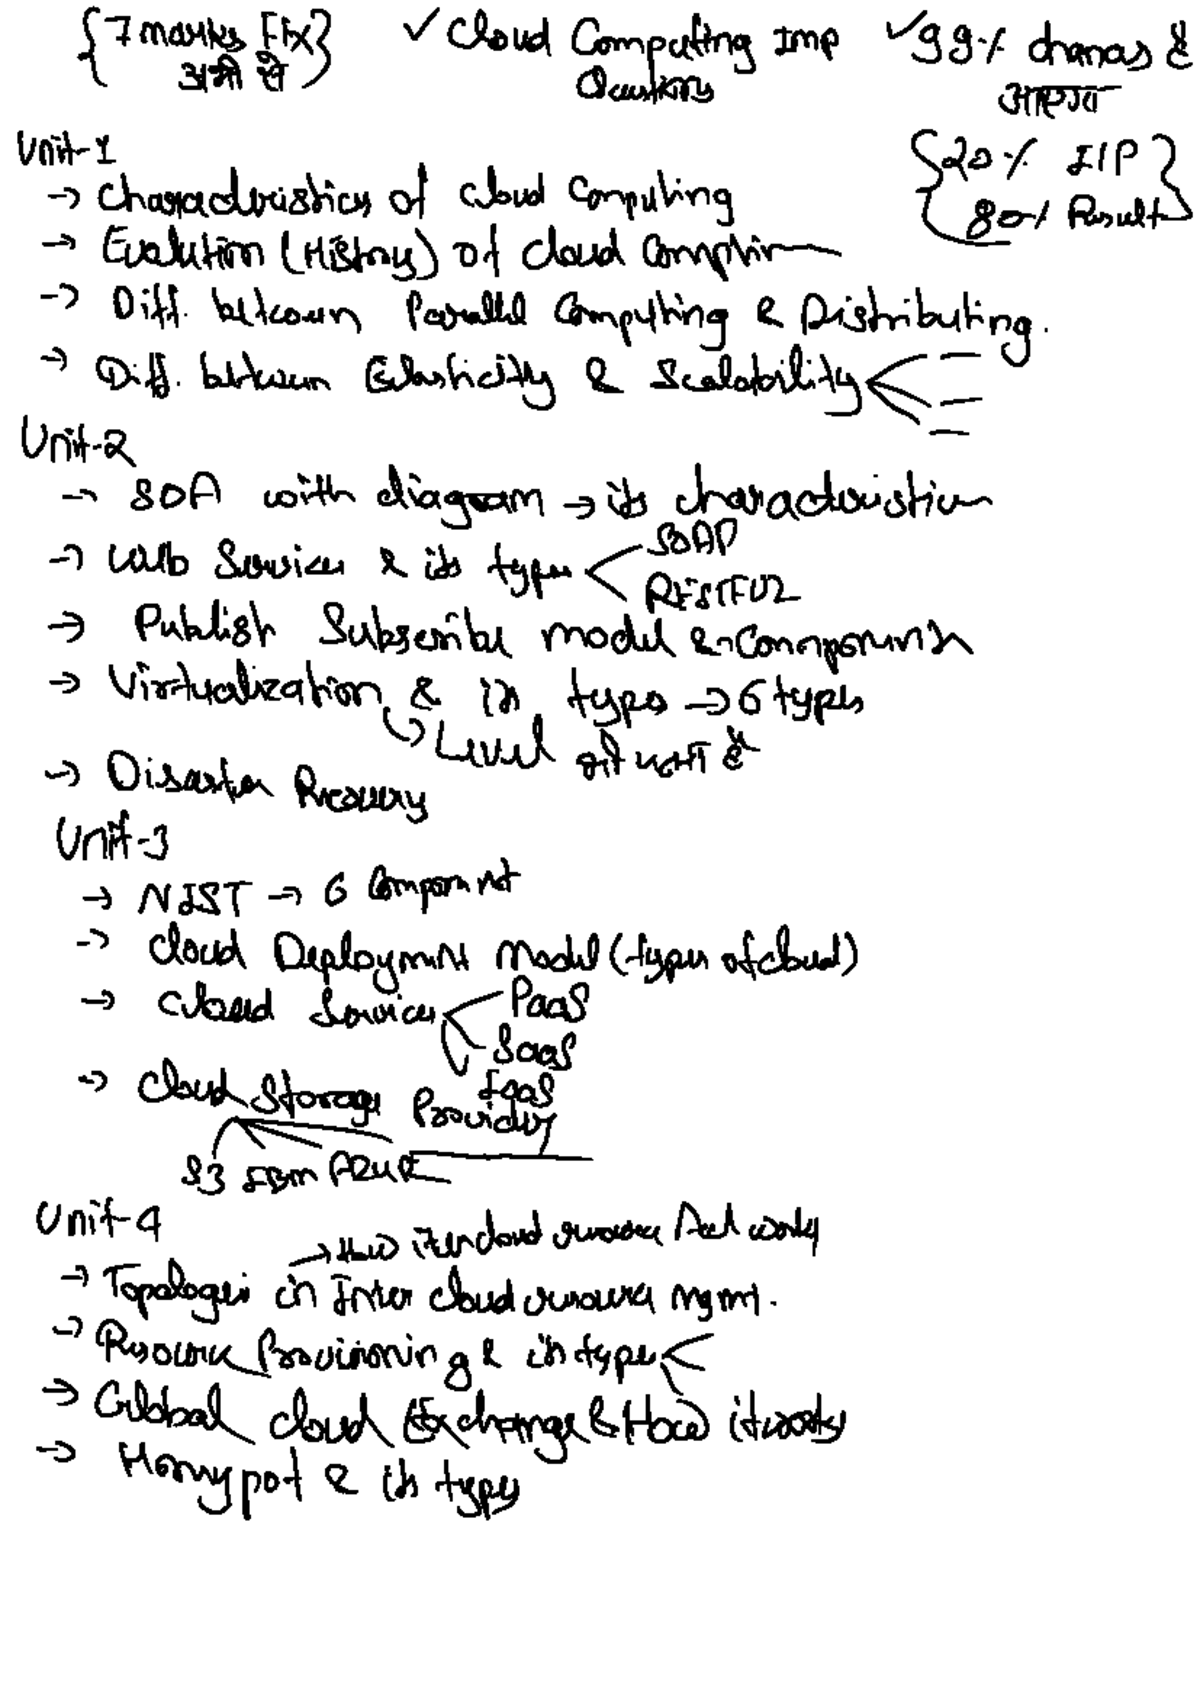 {7 marks Fix} ✓ Cloud Computing Imp ✓ 99% chanas है
अभी से Questions आएगा
Unit-1 {20% I/P
80% Result}
→ Characteristics of Cloud Computing
→ Evalution (History) of cloud
→ Diff. between Parallel Computing & Distributing.
→ Diff. between Elasticity & Scalability
Unit-2
→ SOA with diagram → its characteristics
→ Web Services & its types SOAP
RESTFUL
→ Publish Subscribe model & Components
→ Virtualization & its types → 6 types
Level
→ Disaster Recovery
Unit-3
→ NIST → 6 Component
→ Cloud Deployment Model (types of cloud)
→ Cloud Services PaaS
SaaS
IaaS
→ Cloud Storage Provider
S3 IBM AZURE
Unit-4
→ How works
→ Topologies in Inter cloud resource mgmt.
→ Resource Provisioning & its types
→ Global Cloud Exchange & How it works
→ Honeypot & its types